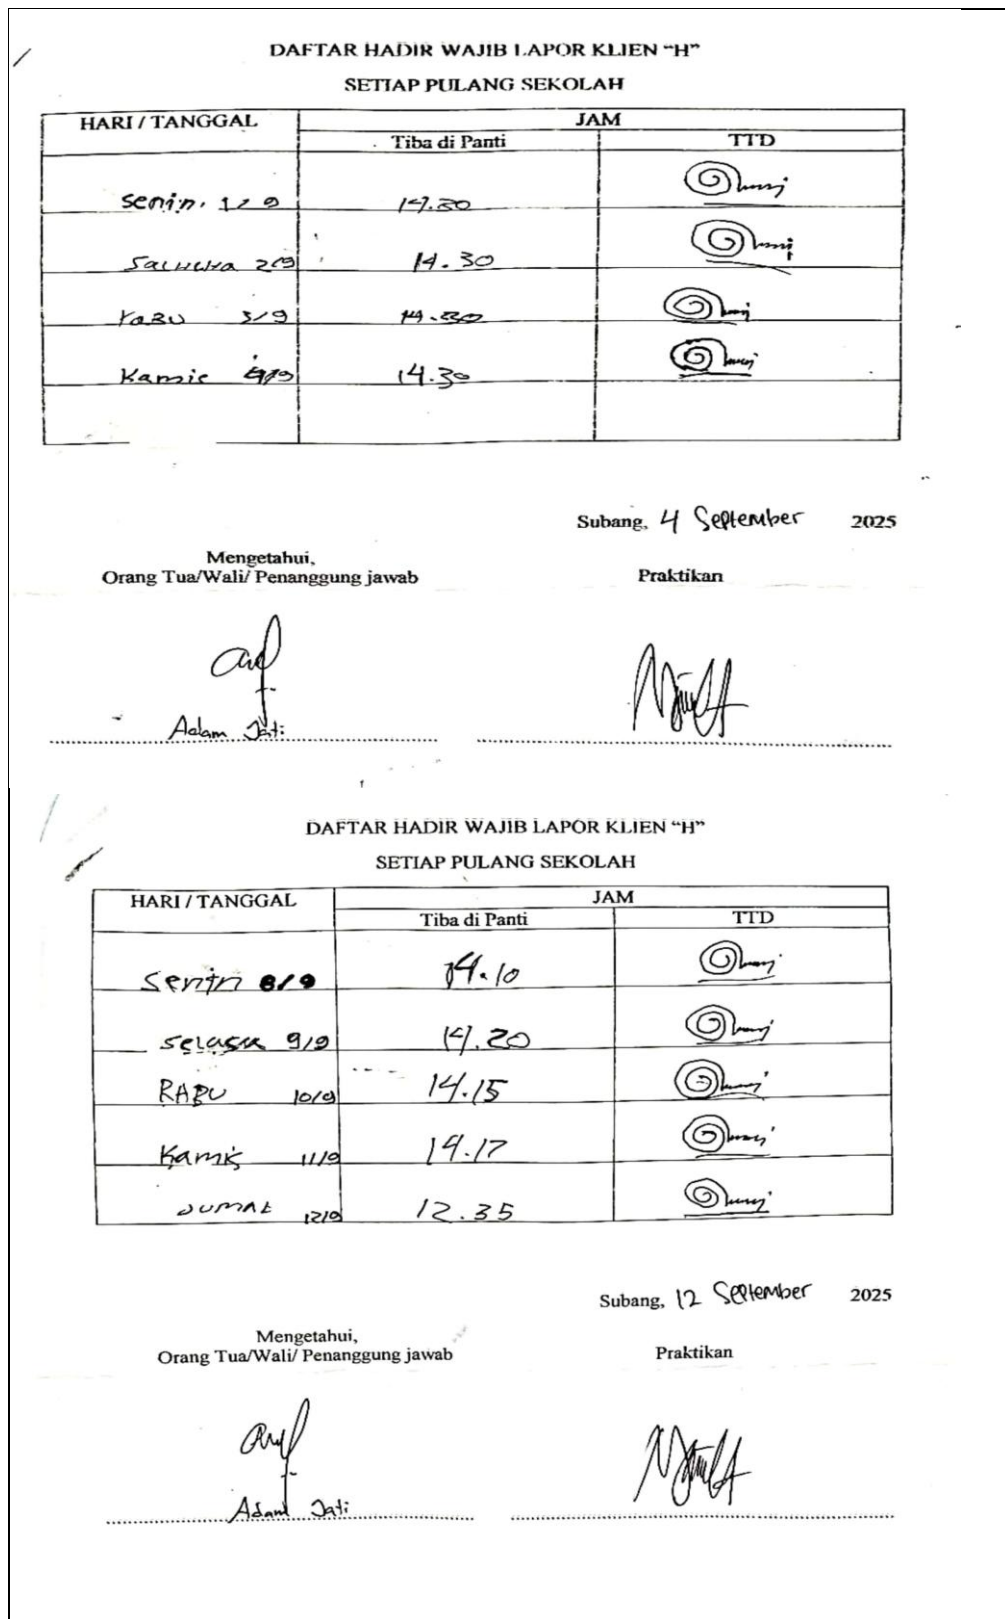 DAFTAR HADIR WAJIB LAPOR KLIEN “H”
SETIAP PULANG SEKOLAH
HARI / TANGGAL JAM
Tiba di Panti TTD
Senin. 1/9
14.30
Rabu 3/9 14.30
Kamis 4/9 14.30
Subang, 4 September 2025
Mengetahui,
Orang Tua/Wali/ Penanggung jawab Praktikan
Adam Jati
DAFTAR HADIR WAJIB LAPOR KLIEN “H”
SETIAP PULANG SEKOLAH
HARI / TANGGAL JAM
Tiba di Panti TTD
Senin 8/9 14.10
Selasa 9/9 14.20
RABU 10/9 14.15
Kamis 11/9 14.17
JUMAt 12/9 12.35
Subang, 12 September 2025
Mengetahui,
Orang Tua/Wali/ Penanggung jawab Praktikan
Adam Jati